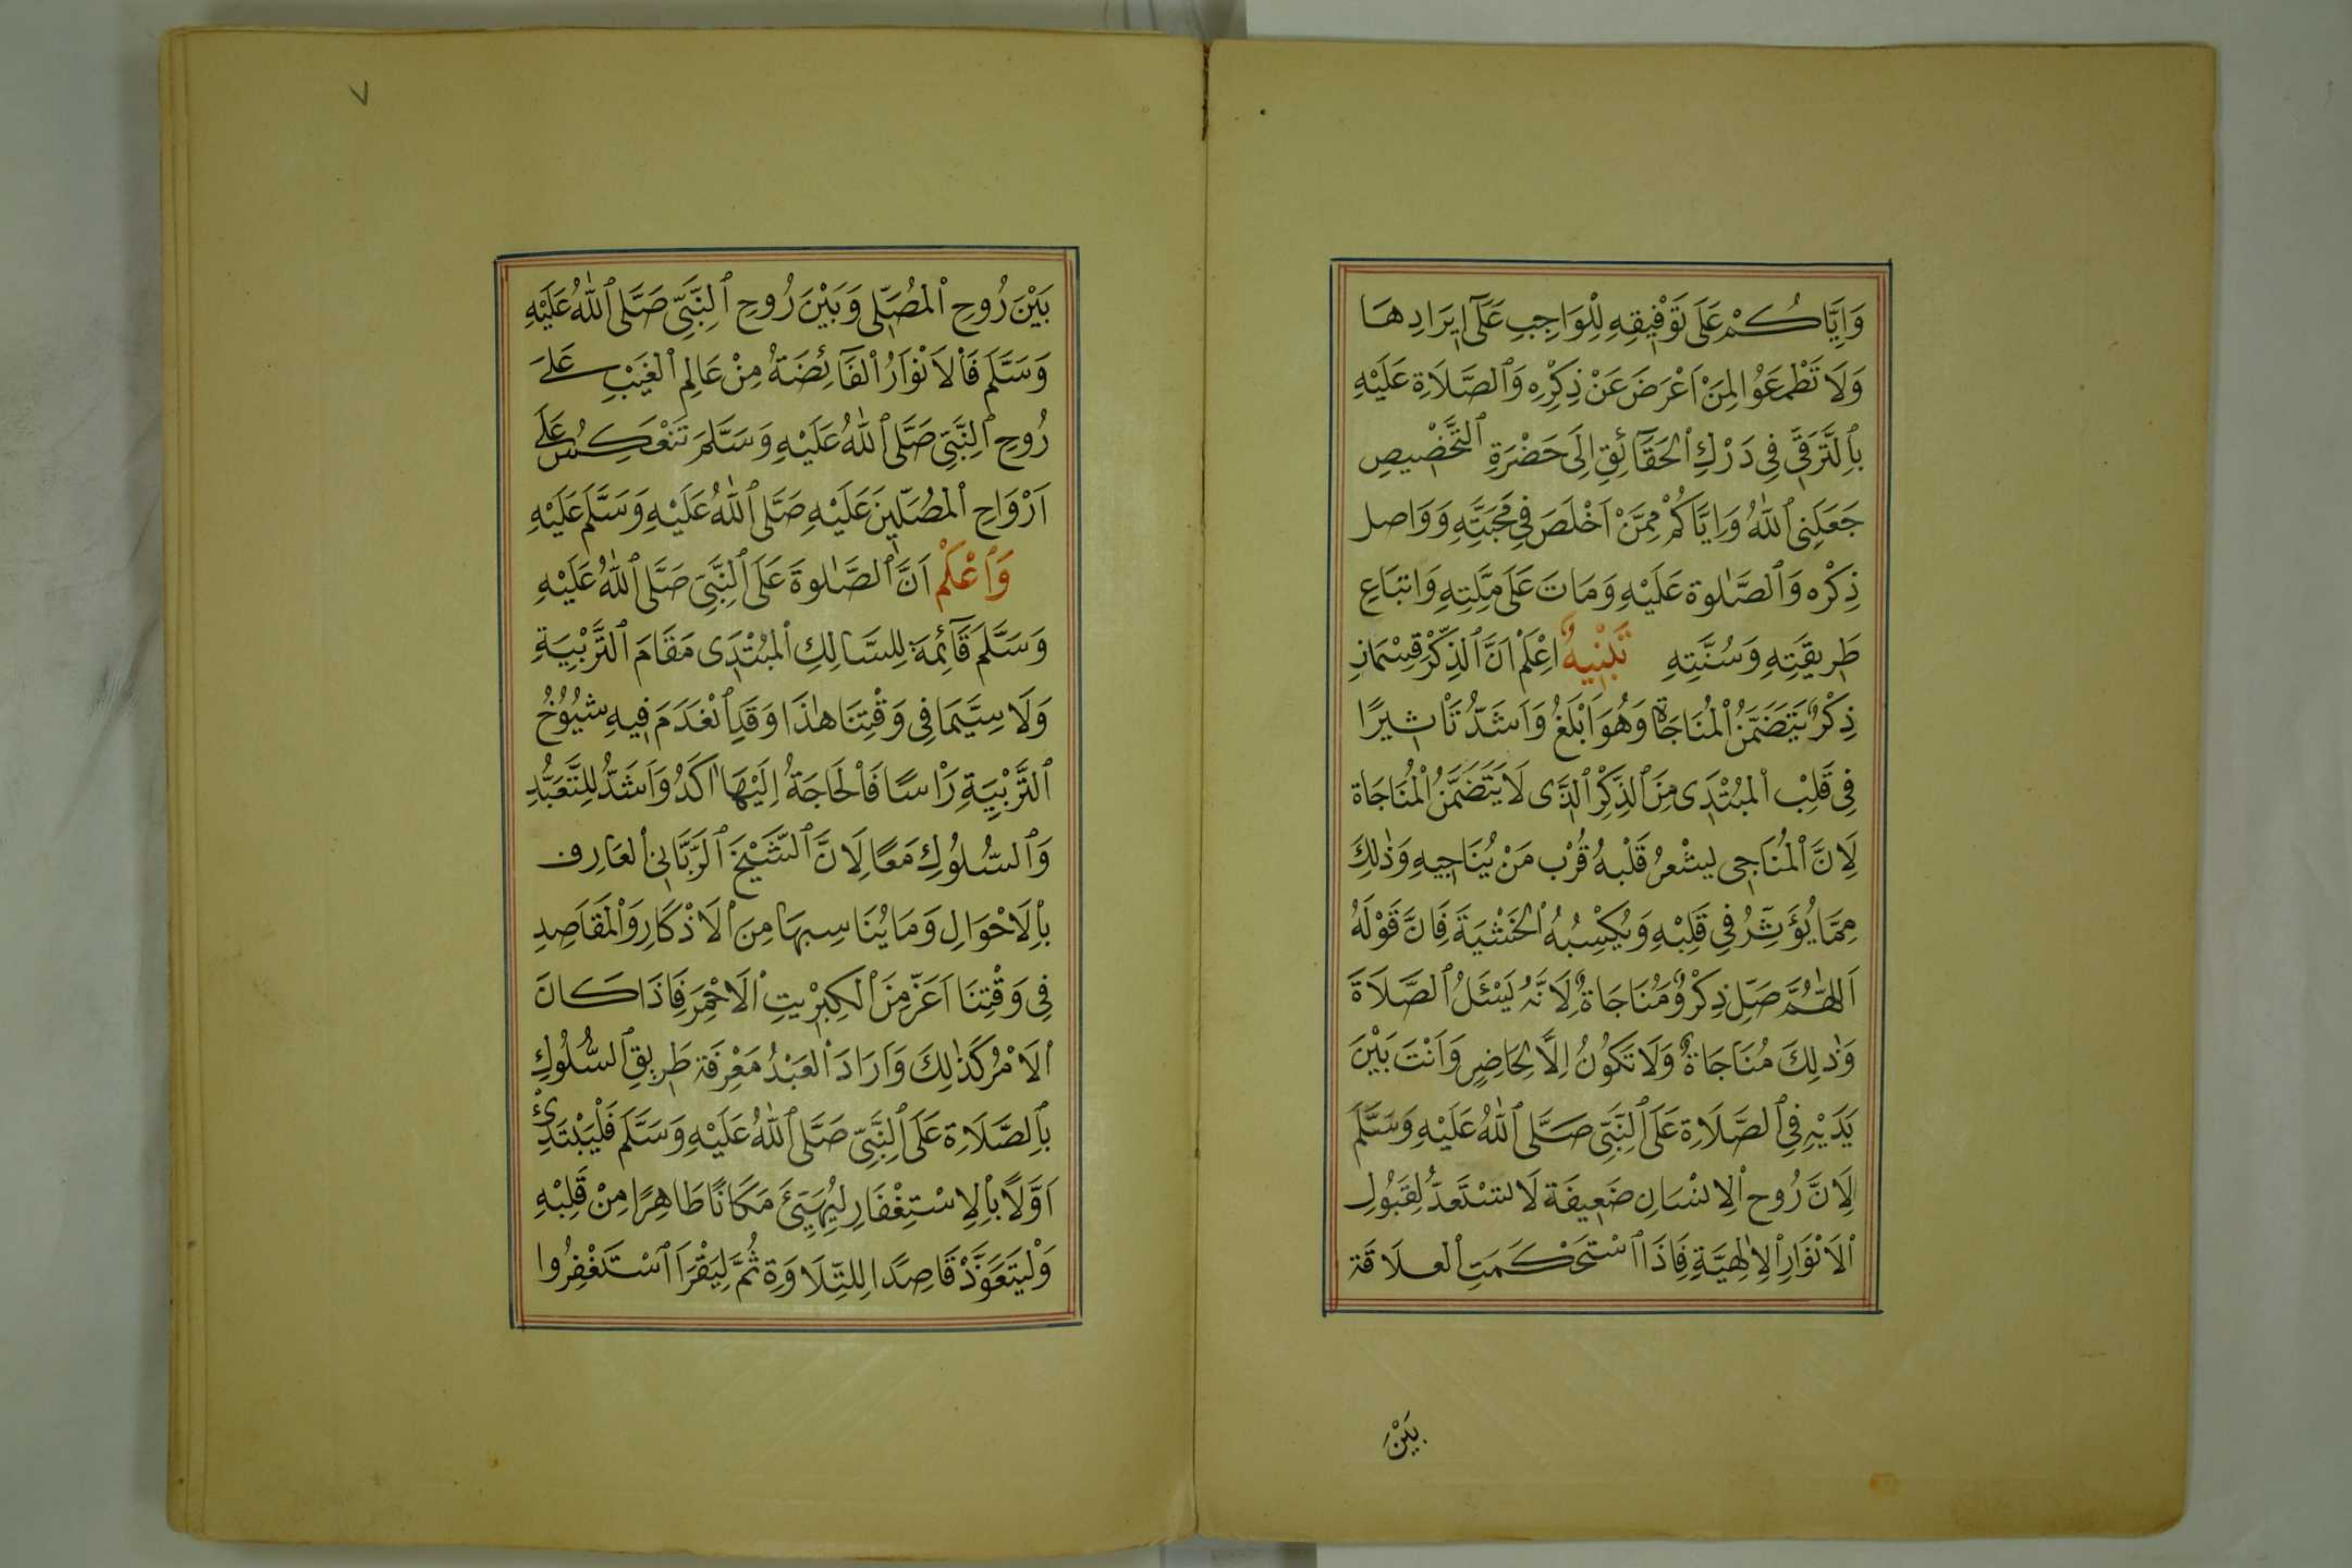 وَاِيَّاكُمْ عَلَى تَوْفِيقِهِ لِلْوَاجِبِ عَلَى اِيرَادِهَا
وَلَا تَطْمَعُوا لِمَنْ اَعْرَضَ عَنْ ذِكْرِهِ وَالصَّلَاةِ عَلَيْهِ
بِالتَّرَقِّى فِى دَرْكِ الْحَقَائِقِ اِلَى حَضْرَةِ التَّخْصِيصِ
جَعَلَنِى اللّٰهُ وَاِيَّاكُمْ مِمَّنْ اَخْلَصَ فِى مَحَبَّتِهِ وَوَاصل
ذِكْرِه وَالصَّلٰوة عَلَيْهِ وَمَاتَ عَلَى مِلَّتِهِ وَاتبَاعِ
طَرِيقَتِهِ وَسُنَّتِهِ تَنْبِيهٌ اِعْلَمْ اَنَّ الذِّكْرَ قِسْمَانِ
ذِكْرٌ يَتَضَمَّنُ الْمُنَاجَاةَ وَهُوَ اَبْلَغُ وَاَشَدُّ تَاْثِيرًا
فِى قَلْبِ الْمُبْتَدِى مِنَ الذِّكْرِ الَّذِى لَا يَتَضَمَّنُ الْمُنَاجَاةَ
لِاَنَّ الْمُنَاجِى يشْعرُ قَلْبهُ قُرْب مَنْ يُنَاجِيهِ وَذٰلِكَ
مِمَّا يُؤَثِّرُ فِى قَلْبِهِ وَيُكْسِبُهُ الْخَشْيَةَ فَاِنَّ قَوْلَهُ
اَللّٰهُمَّ صَلِّ ذِكْرٌ وَمُنَاجَاةٌ لِاَنَّهُ يَسْئَلُ الصَّلَاةَ
وَذٰلِكَ مُنَاجَاةٌ وَلَا تَكُونُ اِلَّا لِحَاضِرٍ وَاَنْتَ بَيْنَ
يَدَيْهِ فِى الصَّلَاةِ عَلَى النَّبِىِّ صَلَّى اللّٰهُ عَلَيْهِ وَسَلَّمَ
لِاَنَّ رُوح الْاِنْسَانِ ضَعِيفَة لَا تَسْتَعدُّ لِقَبُولِ
الْاَنْوَارِ الْاِلٰهِيَّةِ فَاِذَا اسْتَحْكَمَتِ الْعلَاقَة
بَيْنَ
٧
بَيْنَ رُوحِ الْمُصَلِّى وَبَيْنَ رُوحِ النَّبِىِّ صَلَّى اللّٰهُ عَلَيْهِ
وَسَلَّمَ فَالْاَنْوَارُ الْفَائِضَةُ مِنْ عَالِمِ الْغَيْبِ عَلَى
رُوحِ النَّبِىِّ صَلَّى اللّٰهُ عَلَيْهِ وَسَلَّمَ تَنْعَكِسُ عَلَى
اَرْوَاحِ الْمُصَلِّينَ عَلَيْهِ صَلَّى اللّٰهُ عَلَيْهِ وَسَلَّمَ عَلَيْهِ
وَاعْلَمْ اَنَّ الصَّلٰوةَ عَلَى النَّبِىِّ صَلَّى اللّٰهُ عَلَيْهِ
وَسَلَّمَ قَائِمَة لِلسَّالِكِ الْمُبْتَدِى مَقَامَ التَّرْبِيَةِ
وَلَا سِيَّمَا فِى وَقْتِنَا هٰذَا وَقَدِ انْعَدَمَ فِيهِ شُيُوخُ
التَّرْبِيَةِ رَاْسًا فَالْحَاجَةُ اِلَيْهَا اٰكَدُ وَاَشَدُّ لِلتَّعَبُّدِ
وَالسُّلُوكِ مَعًا لِاَنَّ الشَّيْخَ الرَّبَّانِى الْعَارِف
بِالْاَحْوَالِ وَمَا يُنَاسِبهَا مِنَ الْاَذْكَارِ وَالْمَقَاصِدِ
فِى وَقْتِنَا اَعَزّ مِنَ الْكِبْرِيتِ الْاَحْمَرِ فَاِذَا كَانَ
الْاَمْرُ كَذٰلِكَ وَاَرَادَ الْعَبْدُ مَعْرِفَة طَرِيقِ السُّلُوكِ
بِالصَّلَاةِ عَلَى النَّبِىِّ صَلَّى اللّٰهُ عَلَيْهِ وَسَلَّمَ فَلْيَبْتَدِئْ
اَوَّلًا بِالْاِسْتِغْفَارِ لِيُهَيِّئَ مَكَانًا طَاهِرًا مِنْ قَلْبِهِ
وَلْيَتَعَوَّذْ قَاصِدًا لِلتِّلَاوَةِ ثُمَّ لِيَقْرَا اسْتَغْفِرُوا